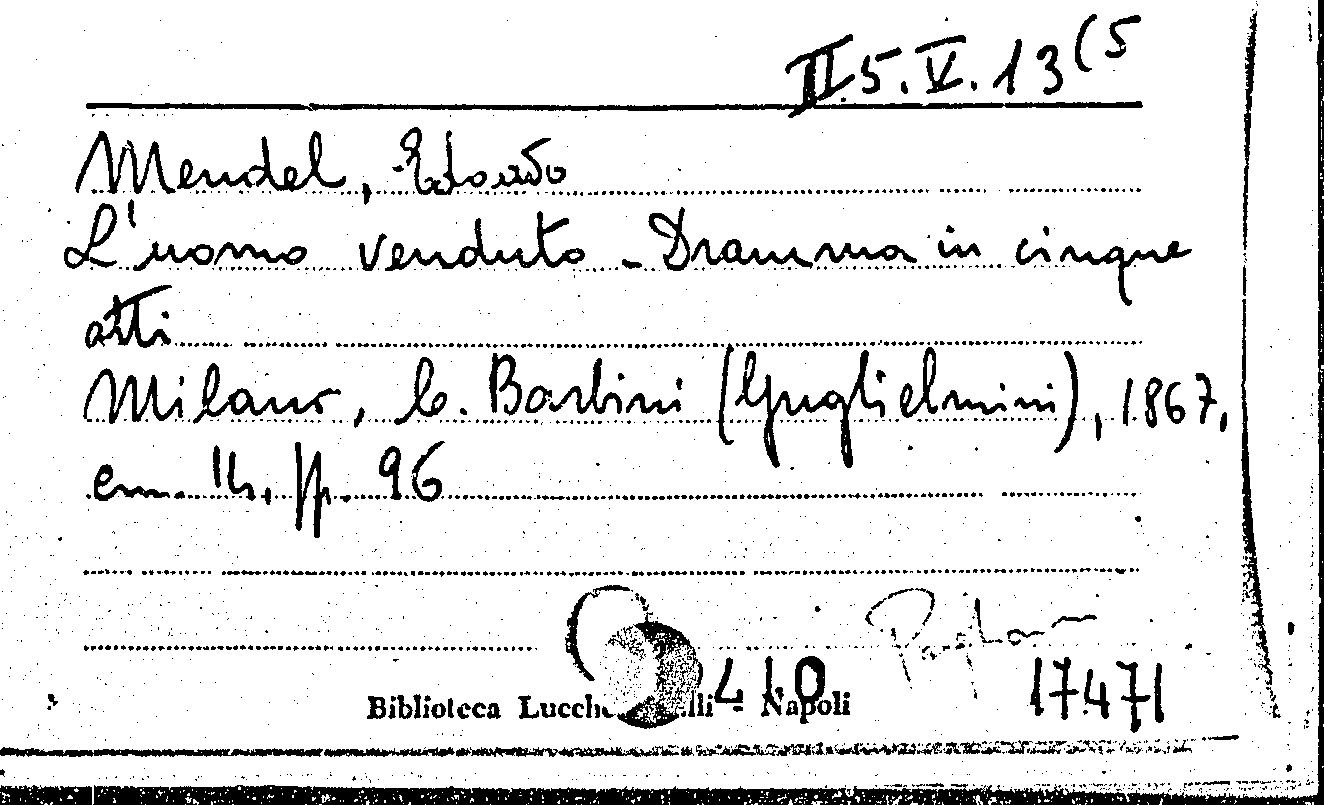 II.5.V.13(5
Mendel, Edoardo
L'uomo venduto - Dramma in cinque
atti
Milano, C. Barbini (Guglielmini), 1867,
cm. 14, pp. 96
410
17471
Biblioteca - Napoli